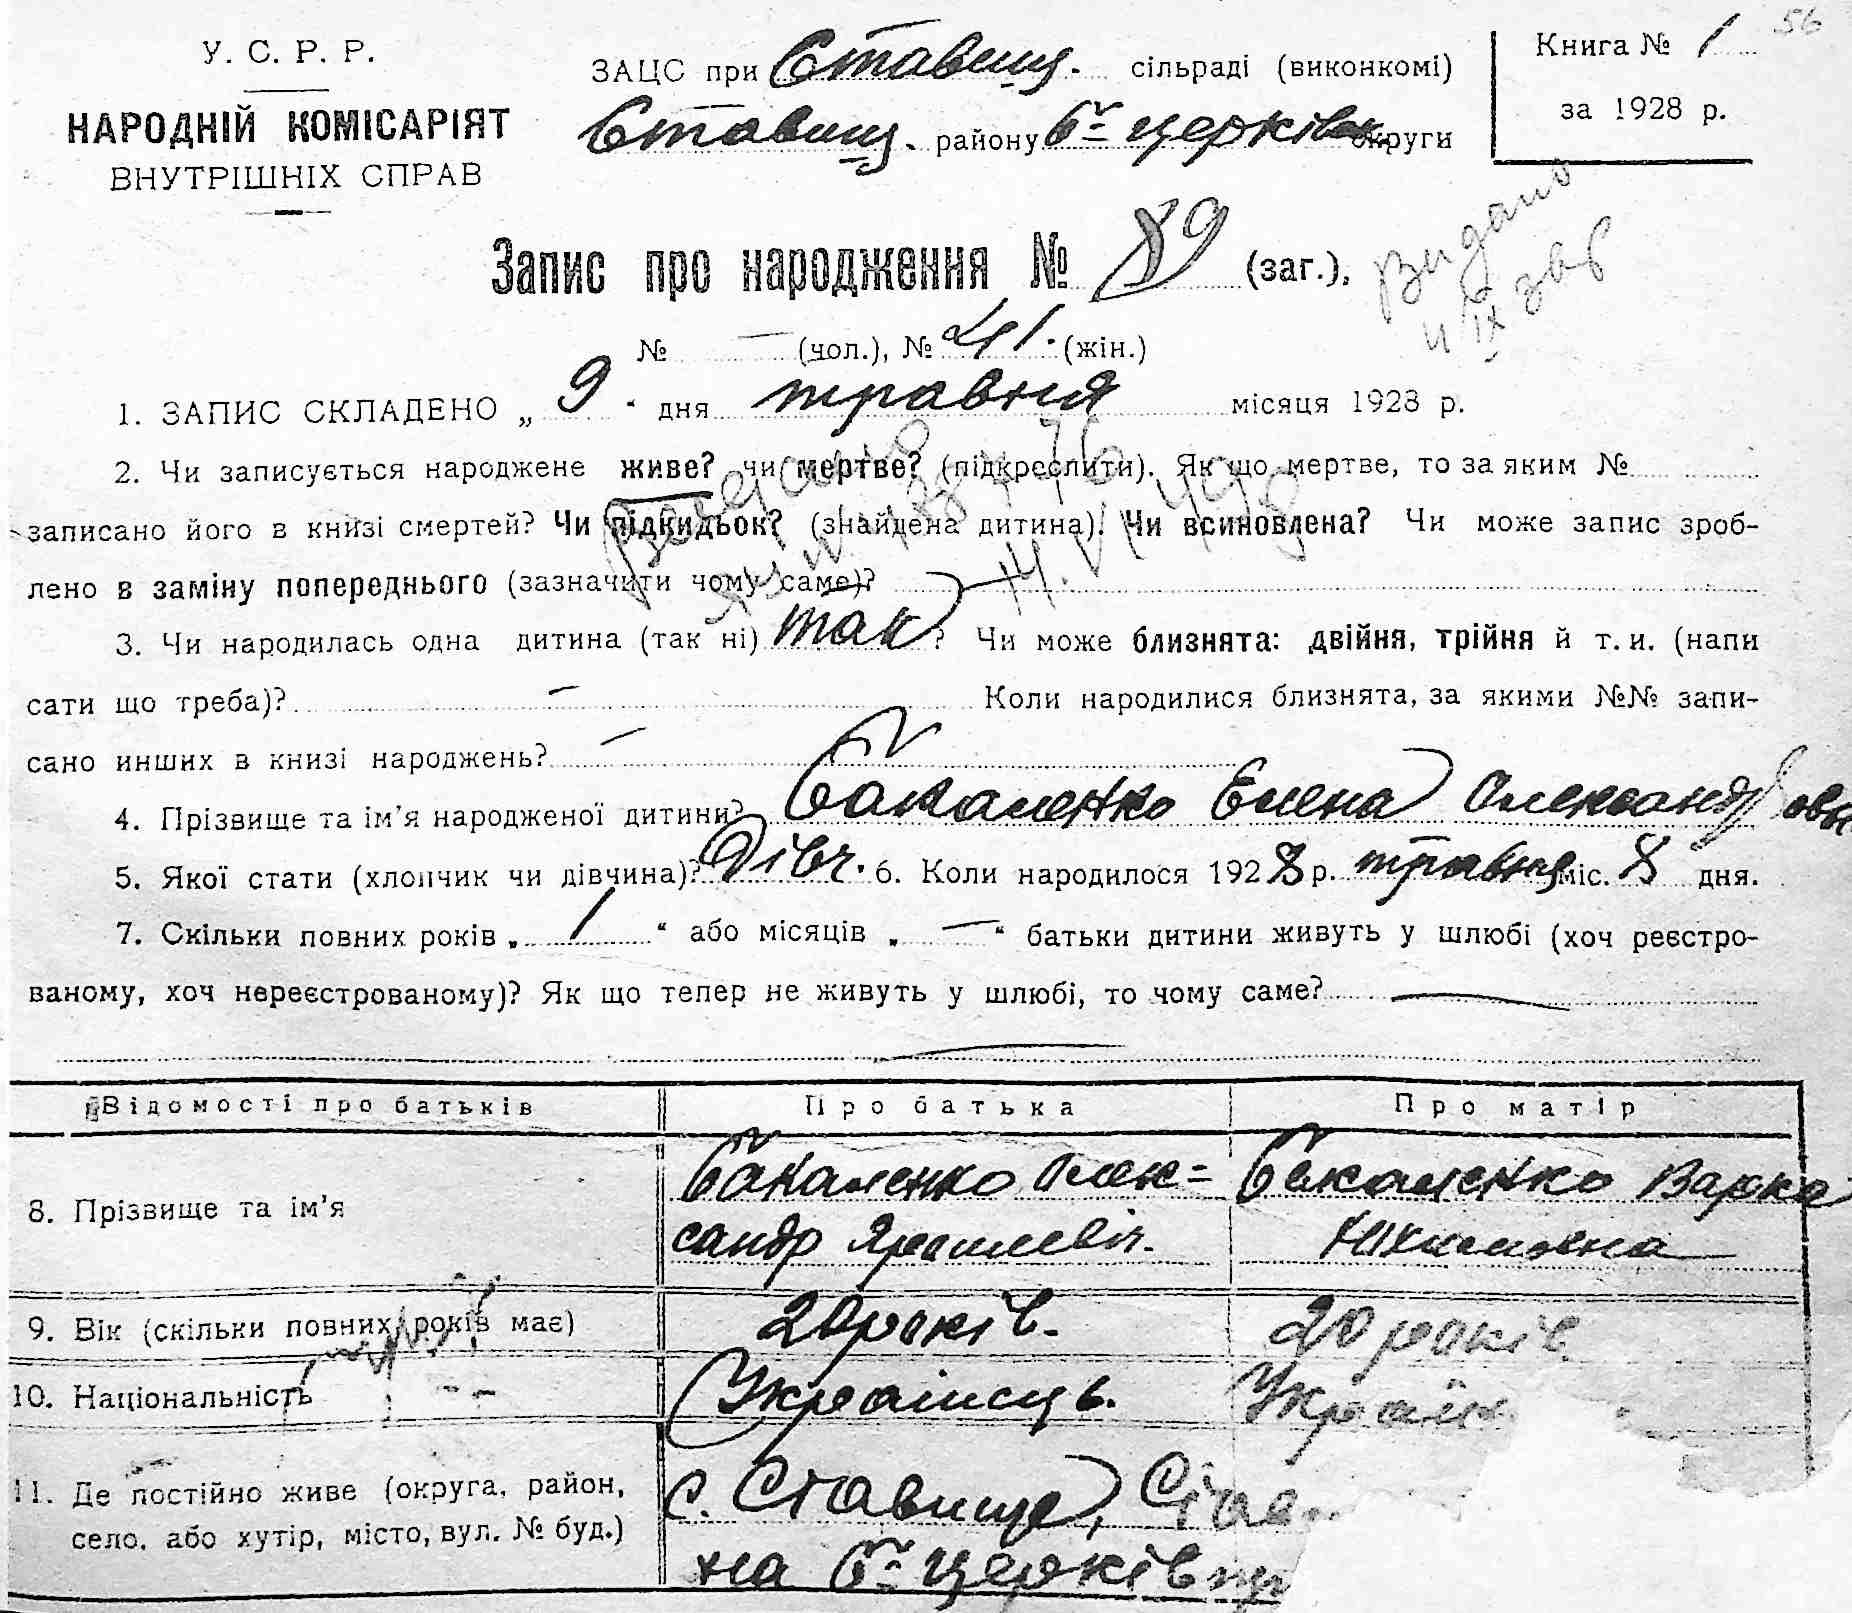 56
У. С. Р. Р.
НАРОДНІЙ КОМІСАРІЯТ
ВНУТРІШНІХ СПРАВ
ЗАЦС при Ставищ. сільраді (виконкомі)
Ставищ. району Б-церківськ округи
Книга № 1
за 1928 р.
Запис про народження № 89 (заг.),
Видано
№ — (чол.), № 41. (жін.)
1. ЗАПИС СКЛАДЕНО „ 9 “ дня травня місяця 1928 р.
2. Чи записується народжене живе? чи мертве? (підкреслити). Як що мертве, то за яким №
записано його в книзі смертей? Чи підкидьок? (знайдена дитина). Чи всиновлена? Чи може запис зроб-
лено в заміну попереднього (зазначити чому саме)?
3. Чи народилась одна дитина (так ні) так ? Чи може близнята: двійня, трійня й т. и. (напи
сати що треба)? — Коли народилися близнята, за якими №№ запи-
сано инших в книзі народжень? —
4. Прізвище та ім'я народженої дитини? Бакаленко Елена Олександровн
5. Якої стати (хлопчик чи дівчина)? Дівч. 6. Коли народилося 1928 р. травня міс. 8 дня.
7. Скільки повних років „ 1 “ або місяців „ — “ батьки дитини живуть у шлюбі (хоч реєстро-
ваному, хоч нереєстрованому)? Як що тепер не живуть у шлюбі, то чому саме? —
Відомості про батьків Про батька Про матір
8. Прізвище та ім'я
Бакаленко Олек-
сандр
Бакаленко Варка
9. Вік (скільки повних років має) 20 років. 20 років
10. Національність Українець. Україн
11. Де постійно живе (округа, район,
село, або хутір, місто, вул. № буд.)
с. Ставище, Став
на Б-церківщ